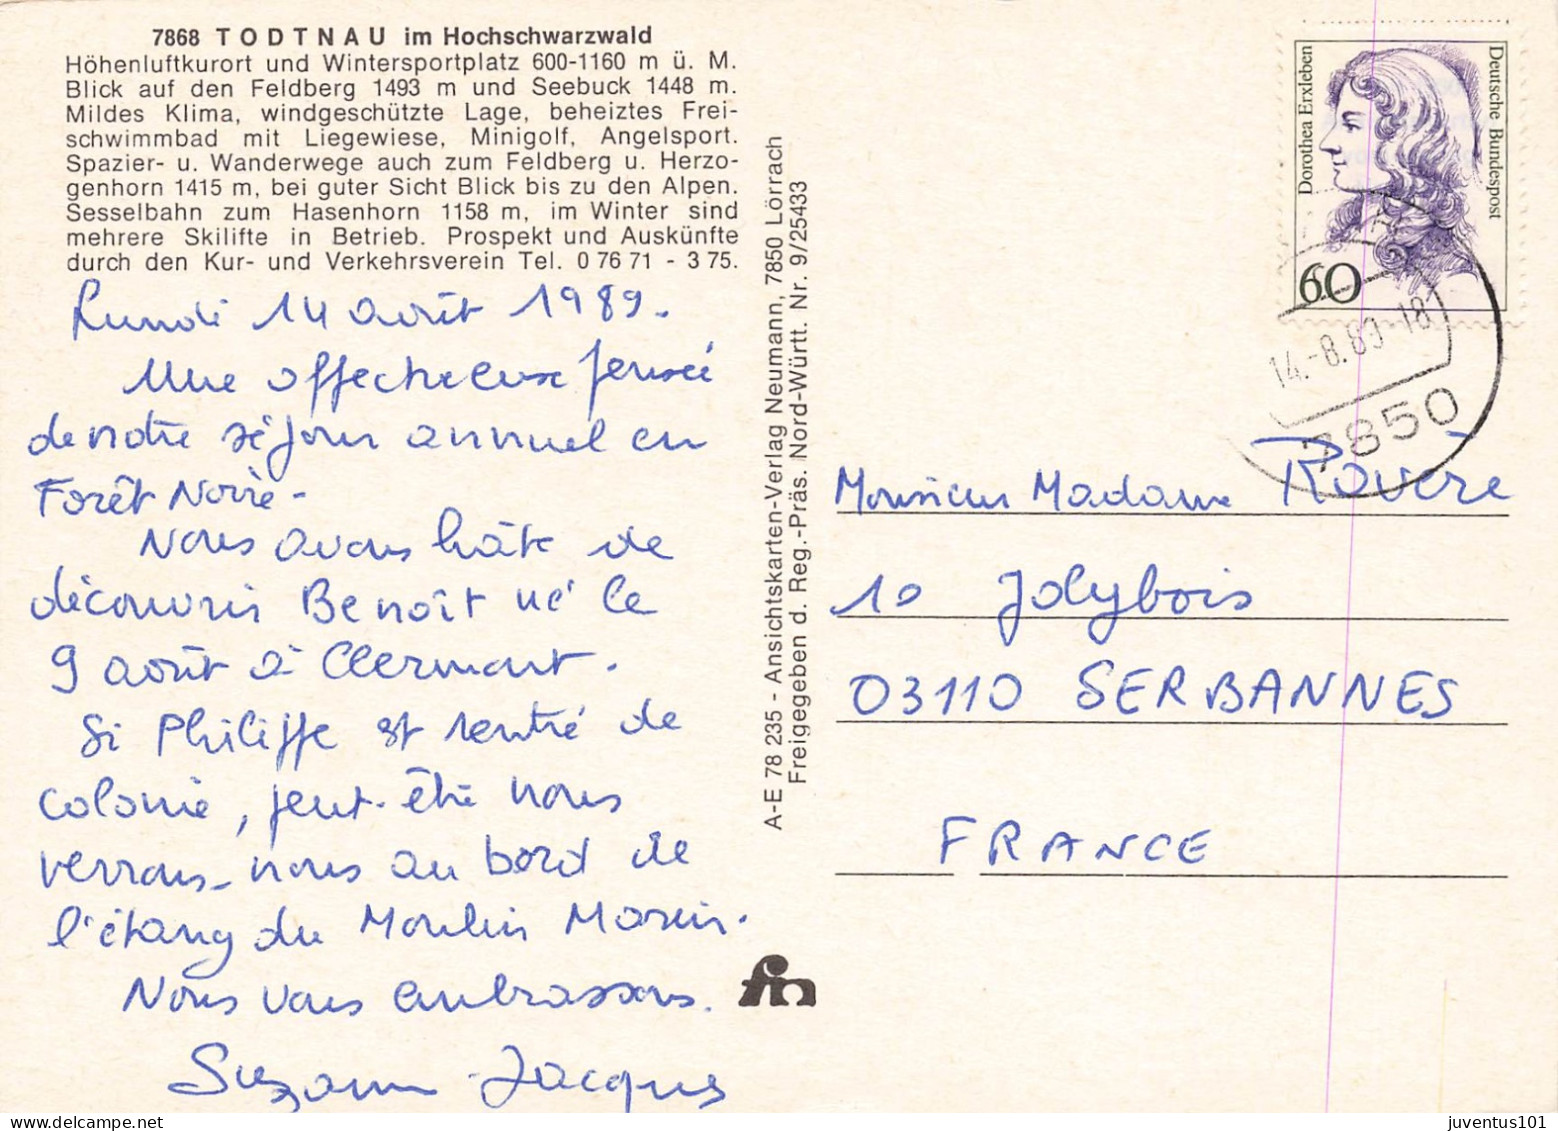 7868 TODTNAU im Hochschwarzwald
Höhenluftkurort und Wintersportplatz 600-1160 m ü. M.
Blick auf den Feldberg 1493 m und Seebuck 1448 m.
Mildes Klima, windgeschützte Lage, beheiztes Frei-
schwimmbad mit Liegewiese, Minigolf, Angelsport.
Spazier- u. Wanderwege auch zum Feldberg u. Herzo-
genhorn 1415 m, bei guter Sicht Blick bis zu den Alpen.
Sesselbahn zum Hasenhorn 1158 m, im Winter sind
mehrere Skilifte in Betrieb. Prospekt und Auskünfte
durch den Kur- und Verkehrsverein Tel. 0 76 71 - 3 75.
Lundi 14 août 1989.
Une affectueuse pensée
de notre séjour annuel en
Forêt Noire-
Nous avons hâte de
découvrir Benoît né le
9 août à Clermont.
Si Philippe est rentré de
colonie, peut-être nous
verrons-nous au bord de
l'étang du Moulin Marin.
Nous vous embrassons.
Suzanne Jacques
A-E 78 235 - Ansichtskarten-Verlag Neumann, 7850 Lörrach
Freigegeben d. Reg.-Präs. Nord-Württ. Nr. 9/25433
fn
Dorothea Erxleben
Deutsche Bundespost
60
14.-8.89-18
7850
Monsieur Madame Rovère
10 Jolybois
03110 SERBANNES
FRANCE
juventus101